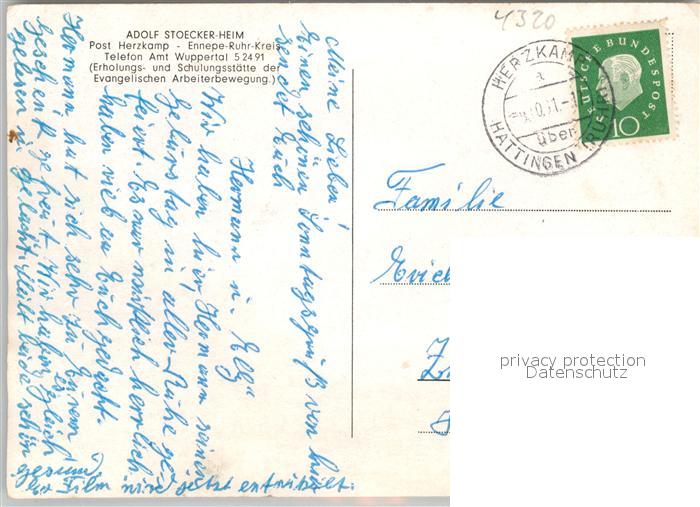 ADOLF STOECKER-HEIM
Post Herzkamp - Ennepe-Ruhr-Kreis
Telefon Amt Wuppertal 5 24 91
(Erholungs- und Schulungsstätte der
Evangelischen Arbeiterbewegung.)
4320
HERZKAMP
a
über
HATTINGEN (RUHR)
DEUTSCHE BUNDESPOST
10
Meine Lieben!
Einen schönen Sonntagsgruß von hier
sendet Euch
Hermann u. Elly
Wir haben hier Hermann seinen
Geburtstag in aller Ruhe ge-
feiert. Es war wirklich herrlich
haben viel an Euch gedacht.
Hermann hat sich sehr zu Eurem
Geschenk gefreut. Wir haben es gleich
gelesen u. gelacht. Bleibt beide schön
gesund,
der Film wird jetzt entwickelt.
Familie
Erich
privacy protection
Datenschutz